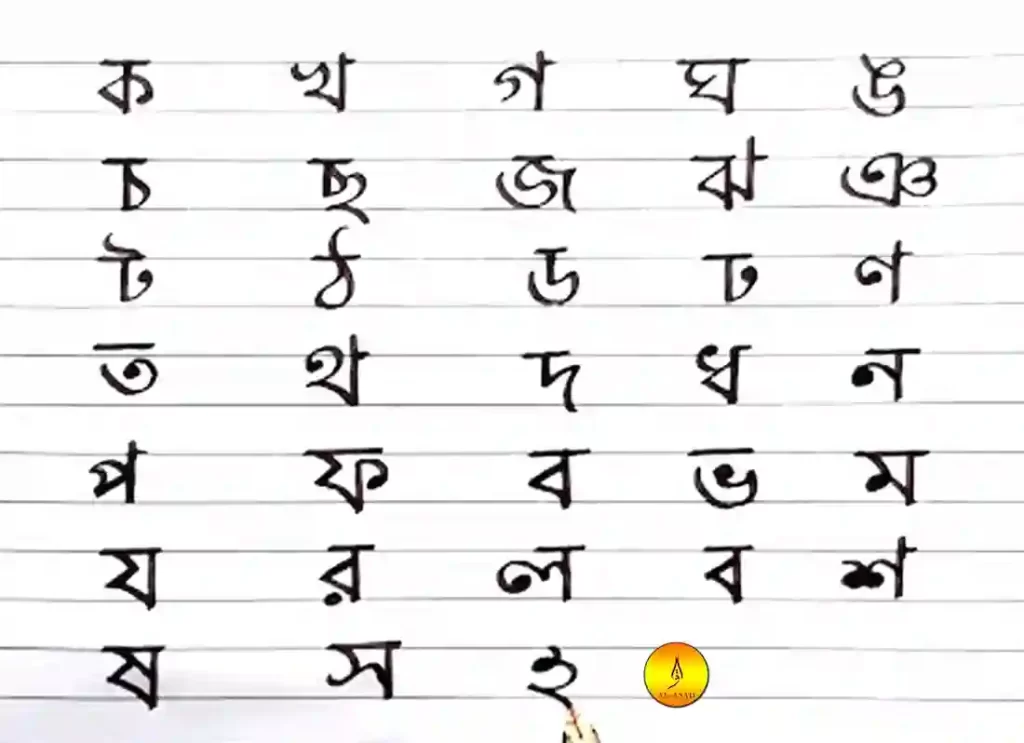 ক খ গ ঘ ঙ
চ ছ জ ঝ ঞ
ট ঠ ড ঢ ণ
ত থ দ ধ ন
প ফ ব ভ ম
য র ল ব শ
ষ স হ